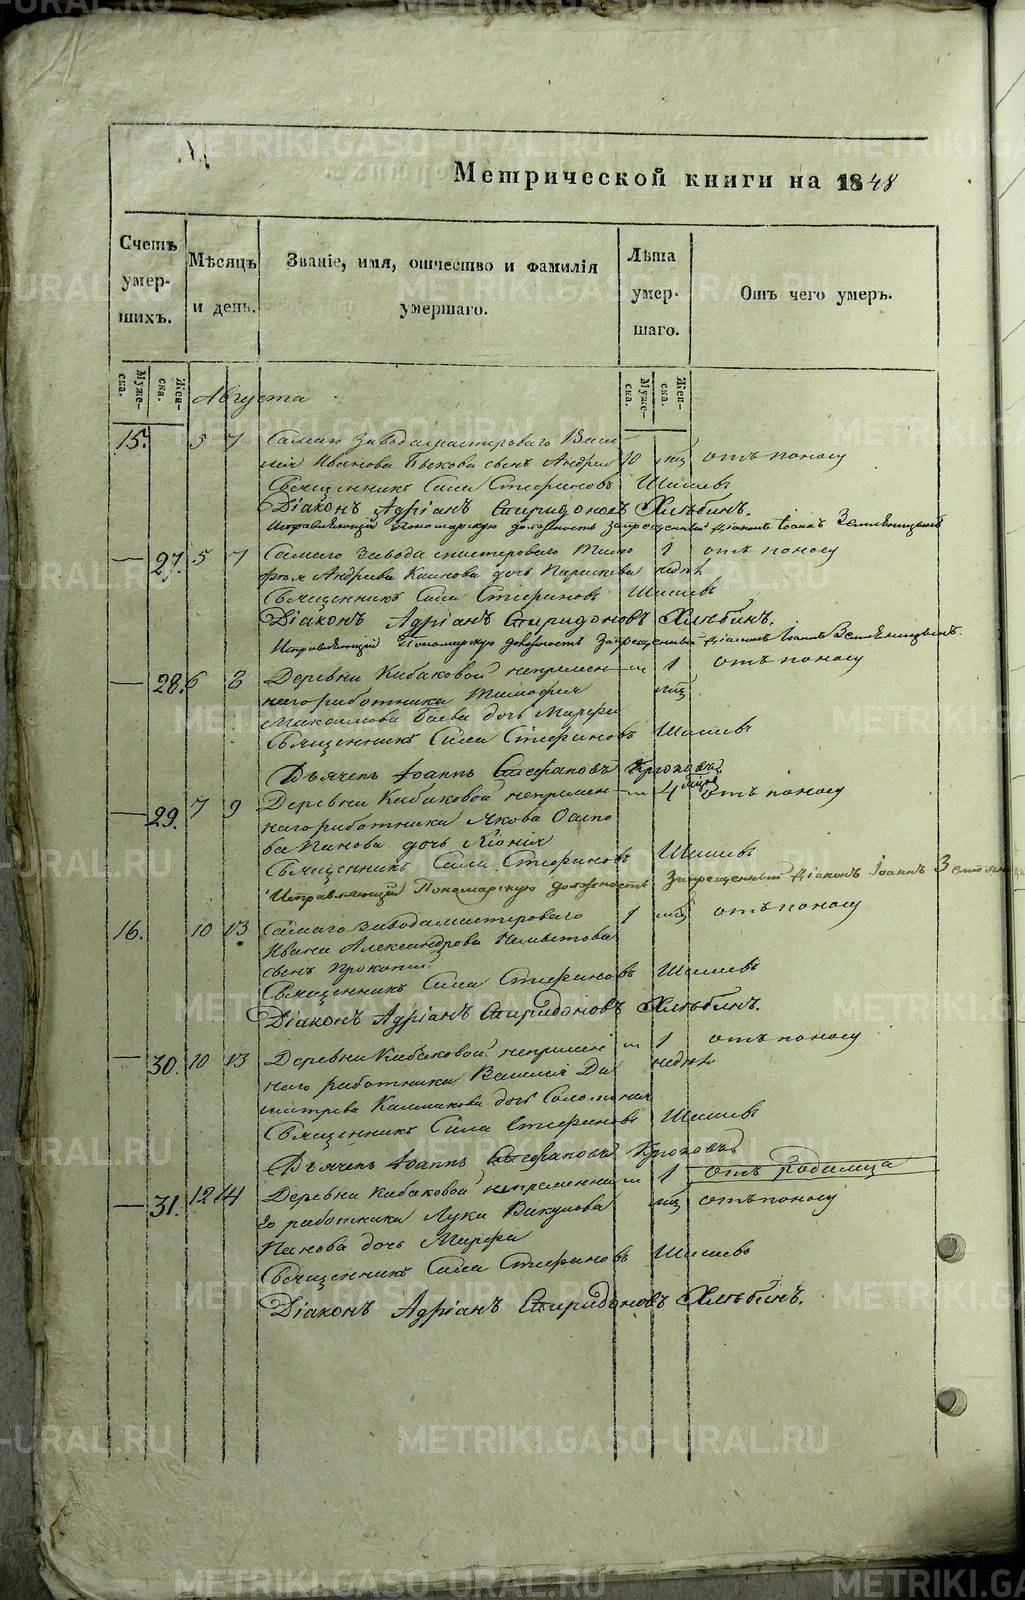 Метрической книги на 1848
Счетъ умерших.
Мѣсяцъ и день.
Званіе, имя, отчество и фамилія умершаго.
Лѣта умершаго.
Отъ чего умеръ.
Муже-ска.
Жен-ска.
Муже-ска.
Жен-ска.
Августа
15. 5 7 Самаго завода мастероваго Васи
лія Иванова Быкова сынъ Андрей 10 мц отъ поносу
Священникъ Сила Стефановъ Шишевъ
Діаконъ Адріанъ Спиридоновъ Хлѣбинъ.
Исправляющій Пономарскую должность Запрещенный Діаконъ Іоаннъ Земляницынъ
— 27. 5 7 Самаго завода мастероваго 1 отъ поносу
Андреева дочь Параскева недѣл
Священникъ Сила Стефановъ Шишевъ
Діаконъ Адріанъ Спиридоновъ Хлѣбинъ.
Исправляющій Пономарскую должность Запрещенный Діаконъ Іоаннъ Земляницынъ
— 28. 6 8 Деревни Кибаковой непремен — 1 отъ поносу
наго работника Тимофея мц
Максимова Баева дочь Марфа
Священникъ Сила Стефановъ Шишевъ
Дьячекъ Іоаннъ Стефановъ
— 29. 7 9 Деревни Кибаковой непремен — 4 отъ поносу
наго работника Якова Осипо
ва Панова дочь
Священникъ Сила Стефановъ Шишевъ
Исправляющій Пономарскую должность Запрещенный Діаконъ Іоаннъ
16. 10 13 Самаго завода мастероваго 1 мц отъ поносу
Ивана Александрова
сынъ Прокопій
Священникъ Сила Стефановъ Шишевъ
Діаконъ Адріанъ Спиридоновъ Хлѣбинъ.
— 30. 10 13 Деревни Кибаковой непремен — 1 отъ поносу
наго работника Василія Ди недѣл
митрева Калмакова дочь Соломонія
Священникъ Сила Стефановъ Шишевъ
Дьячекъ Іоаннъ Стефановъ
— 31. 12 14 Деревни Кибаковой непременна — 1 отъ родимца
го работника Луки Викулова мц отъ поносу
Панова дочь Марфа
Священникъ Сила Стефановъ Шишевъ
Діаконъ Адріанъ Спиридоновъ Хлѣбинъ.
METRIKI.GASO-URAL.RU